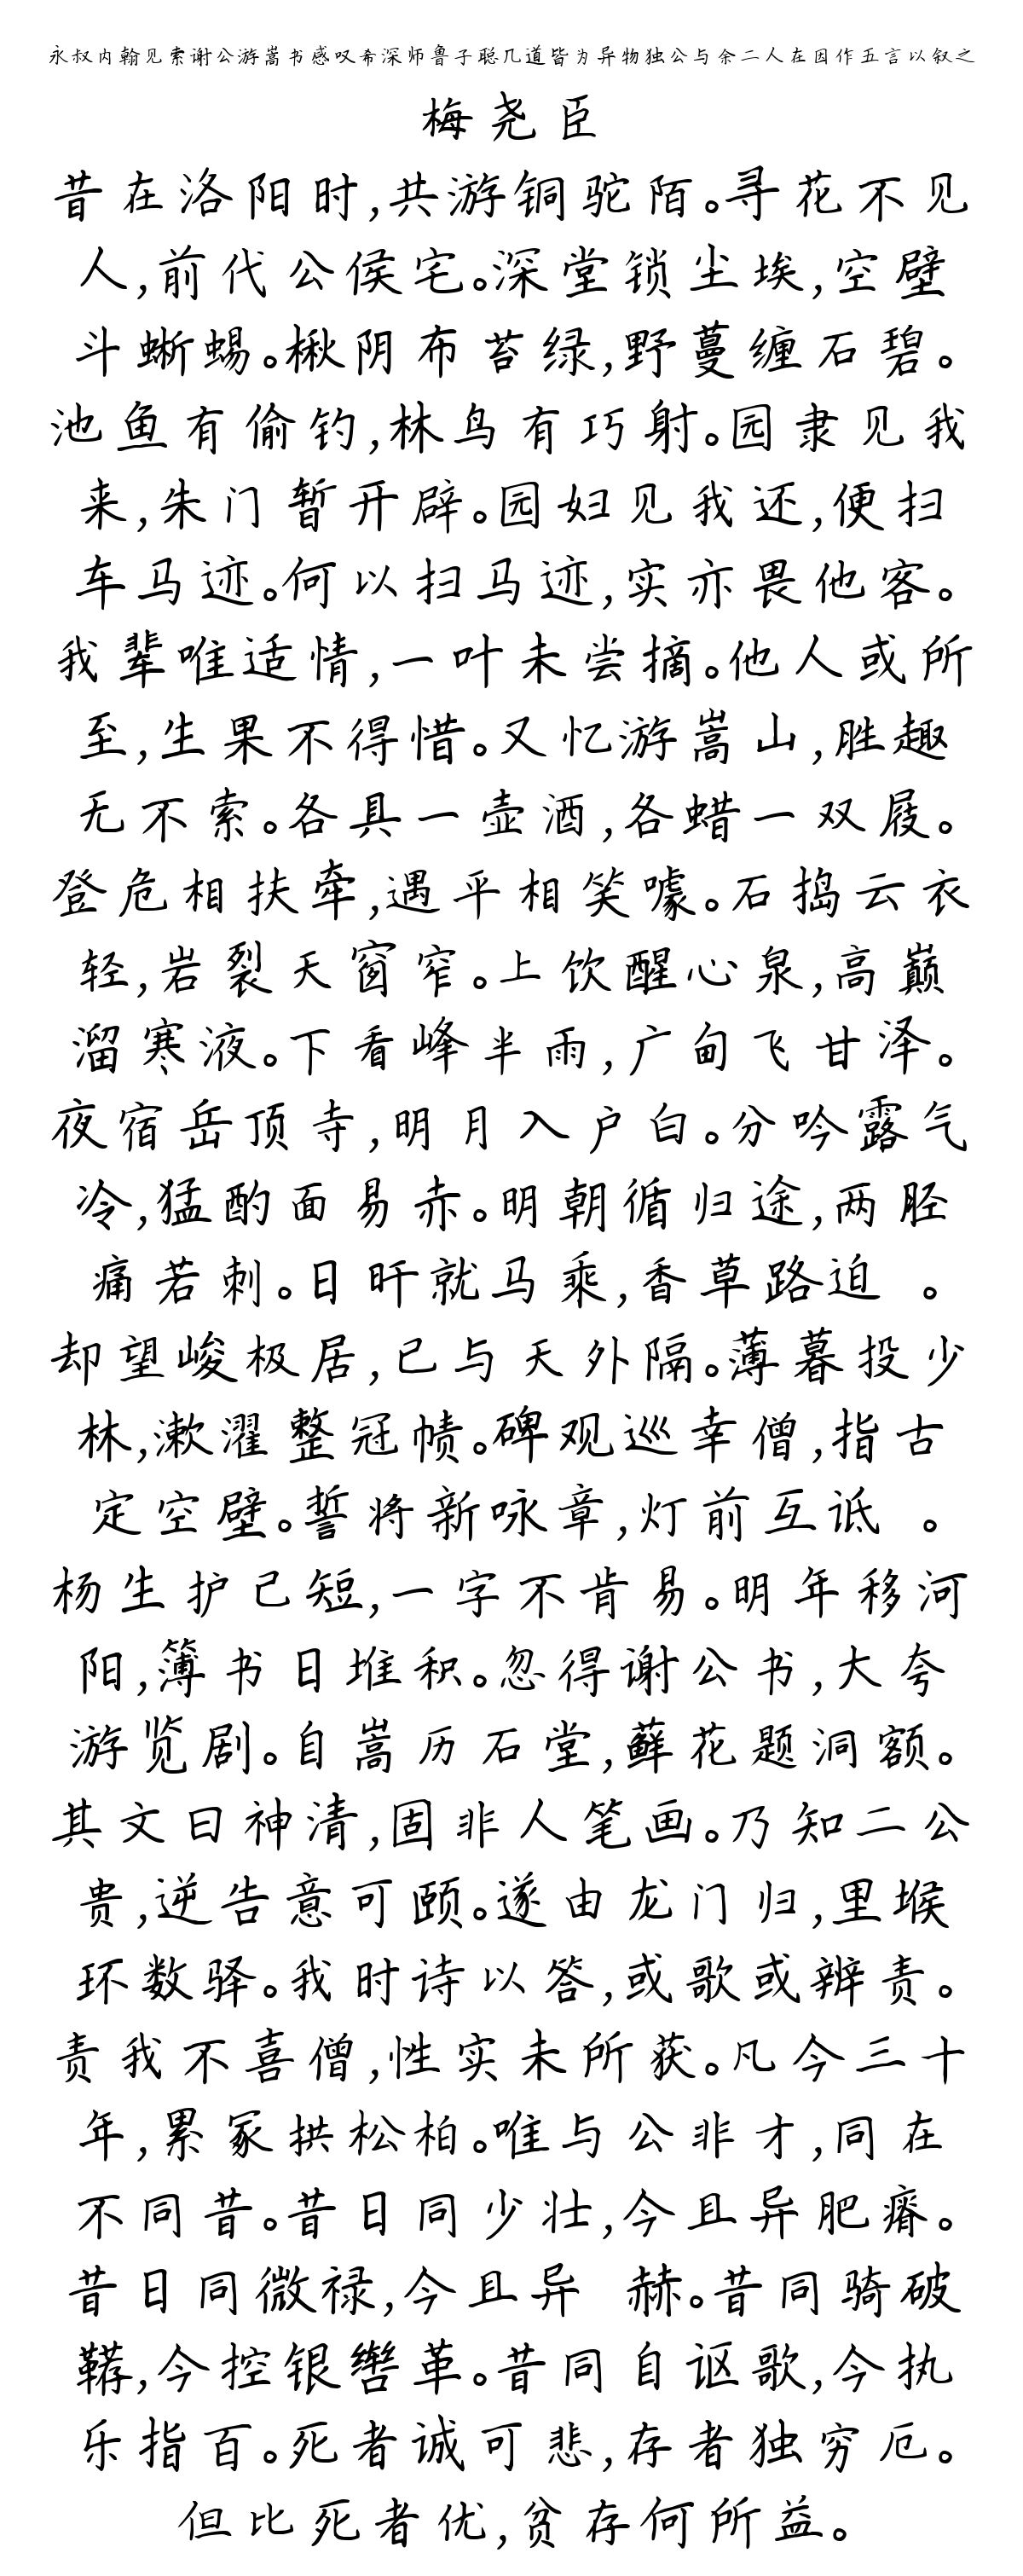 永叔内翰见索谢公游嵩书感叹希深师鲁子聪几道皆为异物独公与余二人在因作五言以叙之
梅尧臣
昔在洛阳时,共游铜驼陌。寻花不见
人,前代公侯宅。深堂锁尘埃,空壁
斗蜥蜴。楸阴布苔绿,野蔓缠石碧。
池鱼有偷钓,林鸟有巧射。园隶见我
来,朱门暂开辟。园妇见我还,便扫
车马迹。何以扫马迹,实亦畏他客。
我辈唯适情,一叶未尝摘。他人或所
至,生果不得惜。又忆游嵩山,胜趣
无不索。各具一壶酒,各蜡一双屐。
登危相扶牵,遇平相笑噱。石捣云衣
轻,岩裂天窗窄。上饮醒心泉,高巅
溜寒液。下看峰半雨,广甸飞甘泽。
夜宿岳顶寺,明月入户白。分吟露气
冷,猛酌面易赤。明朝循归途,两胫
痛若刺。日旰就马乘,香草路迫 。
却望峻极居,已与天外隔。薄暮投少
林,漱濯整冠帻。碑观巡幸僧,指古
定空壁。誓将新咏章,灯前互诋 。
杨生护己短,一字不肯易。明年移河
阳,簿书日堆积。忽得谢公书,大夸
游览剧。自嵩历石堂,藓花题洞额。
其文曰神清,固非人笔画。乃知二公
贵,逆告意可颐。遂由龙门归,里堠
环数驿。我时诗以答,或歌或辨责。
责我不喜僧,性实未所获。凡今三十
年,累冢拱松柏。唯与公非才,同在
不同昔。昔日同少壮,今且异肥瘠。
昔日同微禄,今且异 赫。昔同骑破
鞯,今控银辔革。昔同自讴歌,今执
乐指百。死者诚可悲,存者独穷厄。
但比死者优,贫存何所益。